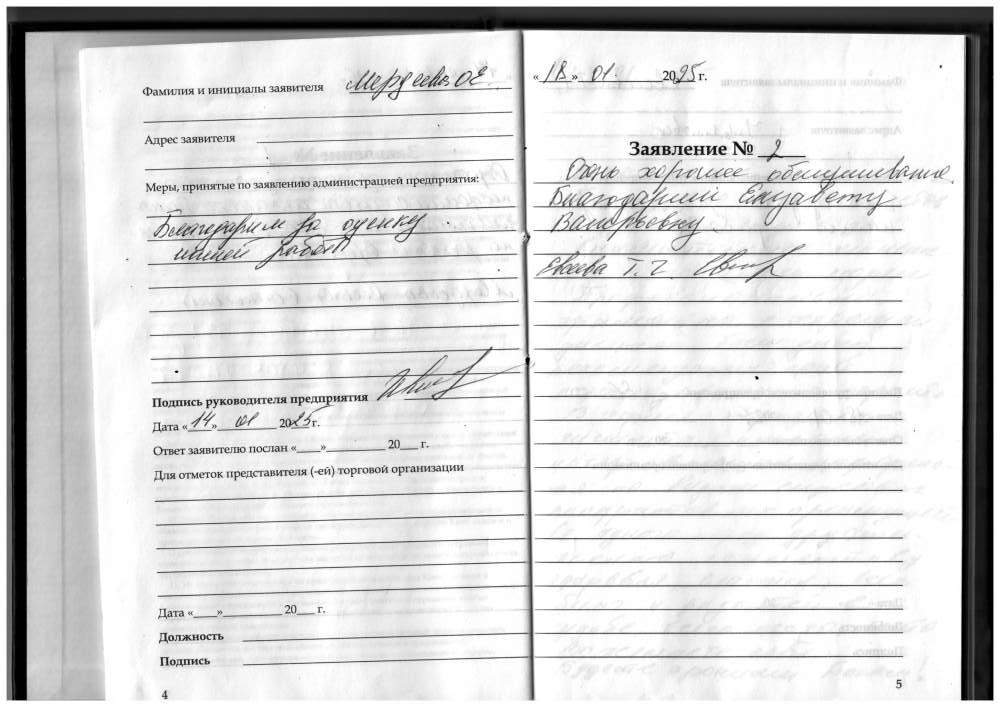 Фамилия и инициалы заявителя
Адрес заявителя
Меры, принятые по заявлению администрацией предприятия:
Благодарим за оценку
нашей работы
Подпись руководителя предприятия
Дата «14» 01 2025г.
Ответ заявителю послан «___»__________ 20___ г.
Для отметок представителя (-ей) торговой организации
Дата «___»__________ 20___ г.
Должность
Подпись
4
«18» 01. 2025г.
Заявление № 2
Очень хорошее обслуживание.
Благодарим Елизавету
Евсеева Т. Г.
5